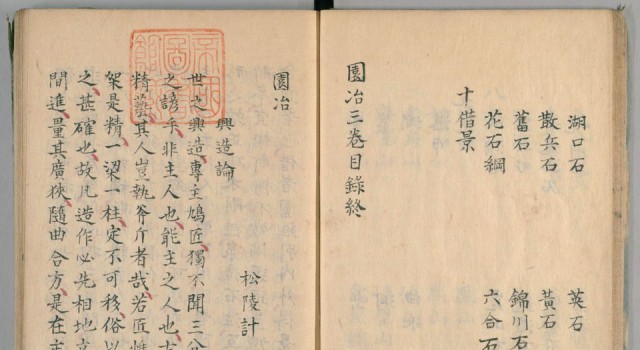 湖口石 英石
散兵石 黃石
舊石 錦川石
花石綱 六合石
十借景
園冶三卷目錄終
園冶
興造論
松陵計
世之興造專主鳩匠獨不聞三分
之諺乎非主人也能主之人也古
精藝其人豈執斧斤者哉若匠惟
架是精一梁一柱定不可移俗以
之甚確也故凡造作必先相地立
間進量其廣狹隨曲合方是在主